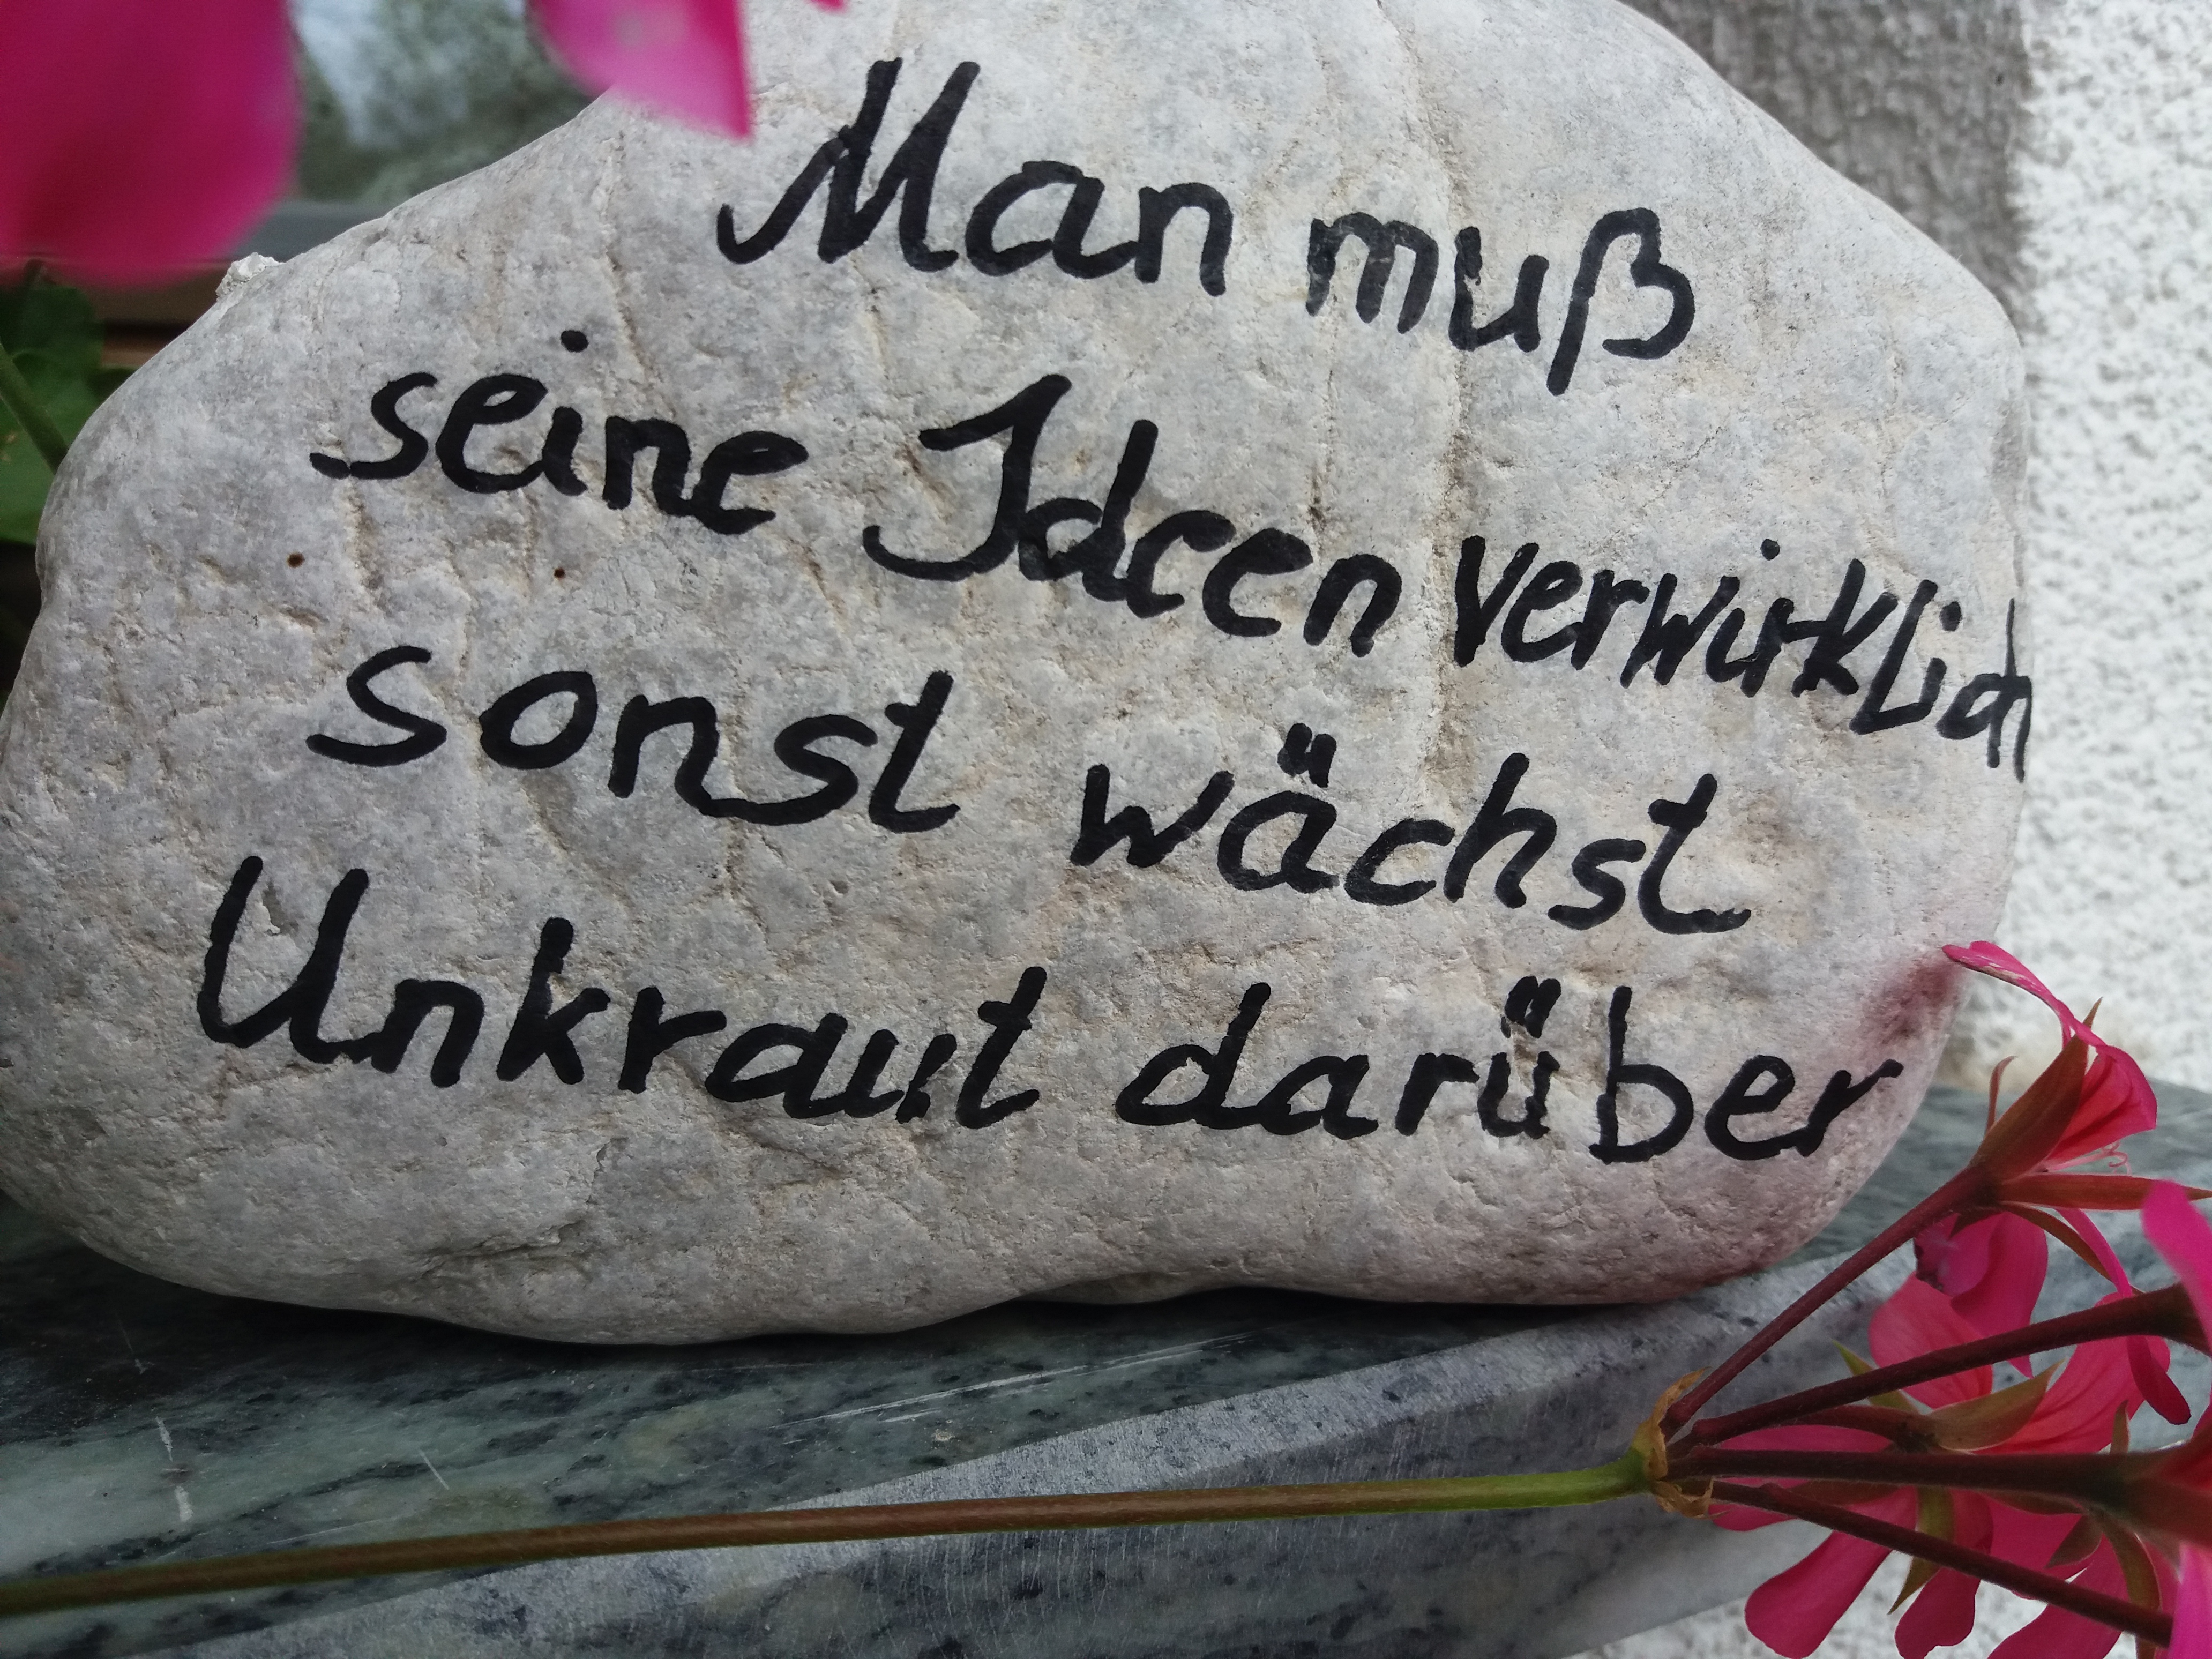 Man muß
seine Ideen verwirklich
sonst wächst
Unkraut darüber